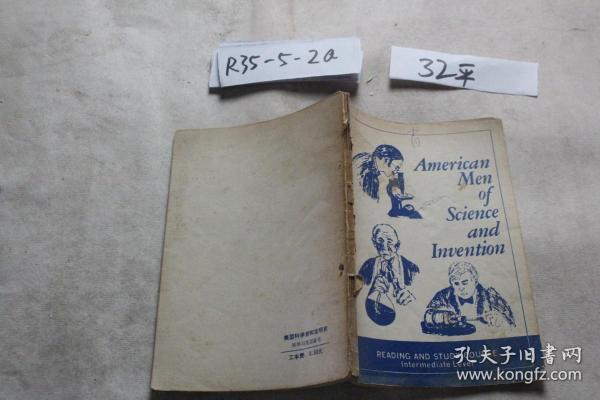 R35-5-20
32平
American
Men
of
Science
and
Invention
READING AND STUDY COURSE
Intermediate Level
美国科学家和发明家
工本费
孔夫子旧书网
www.kongfz.com